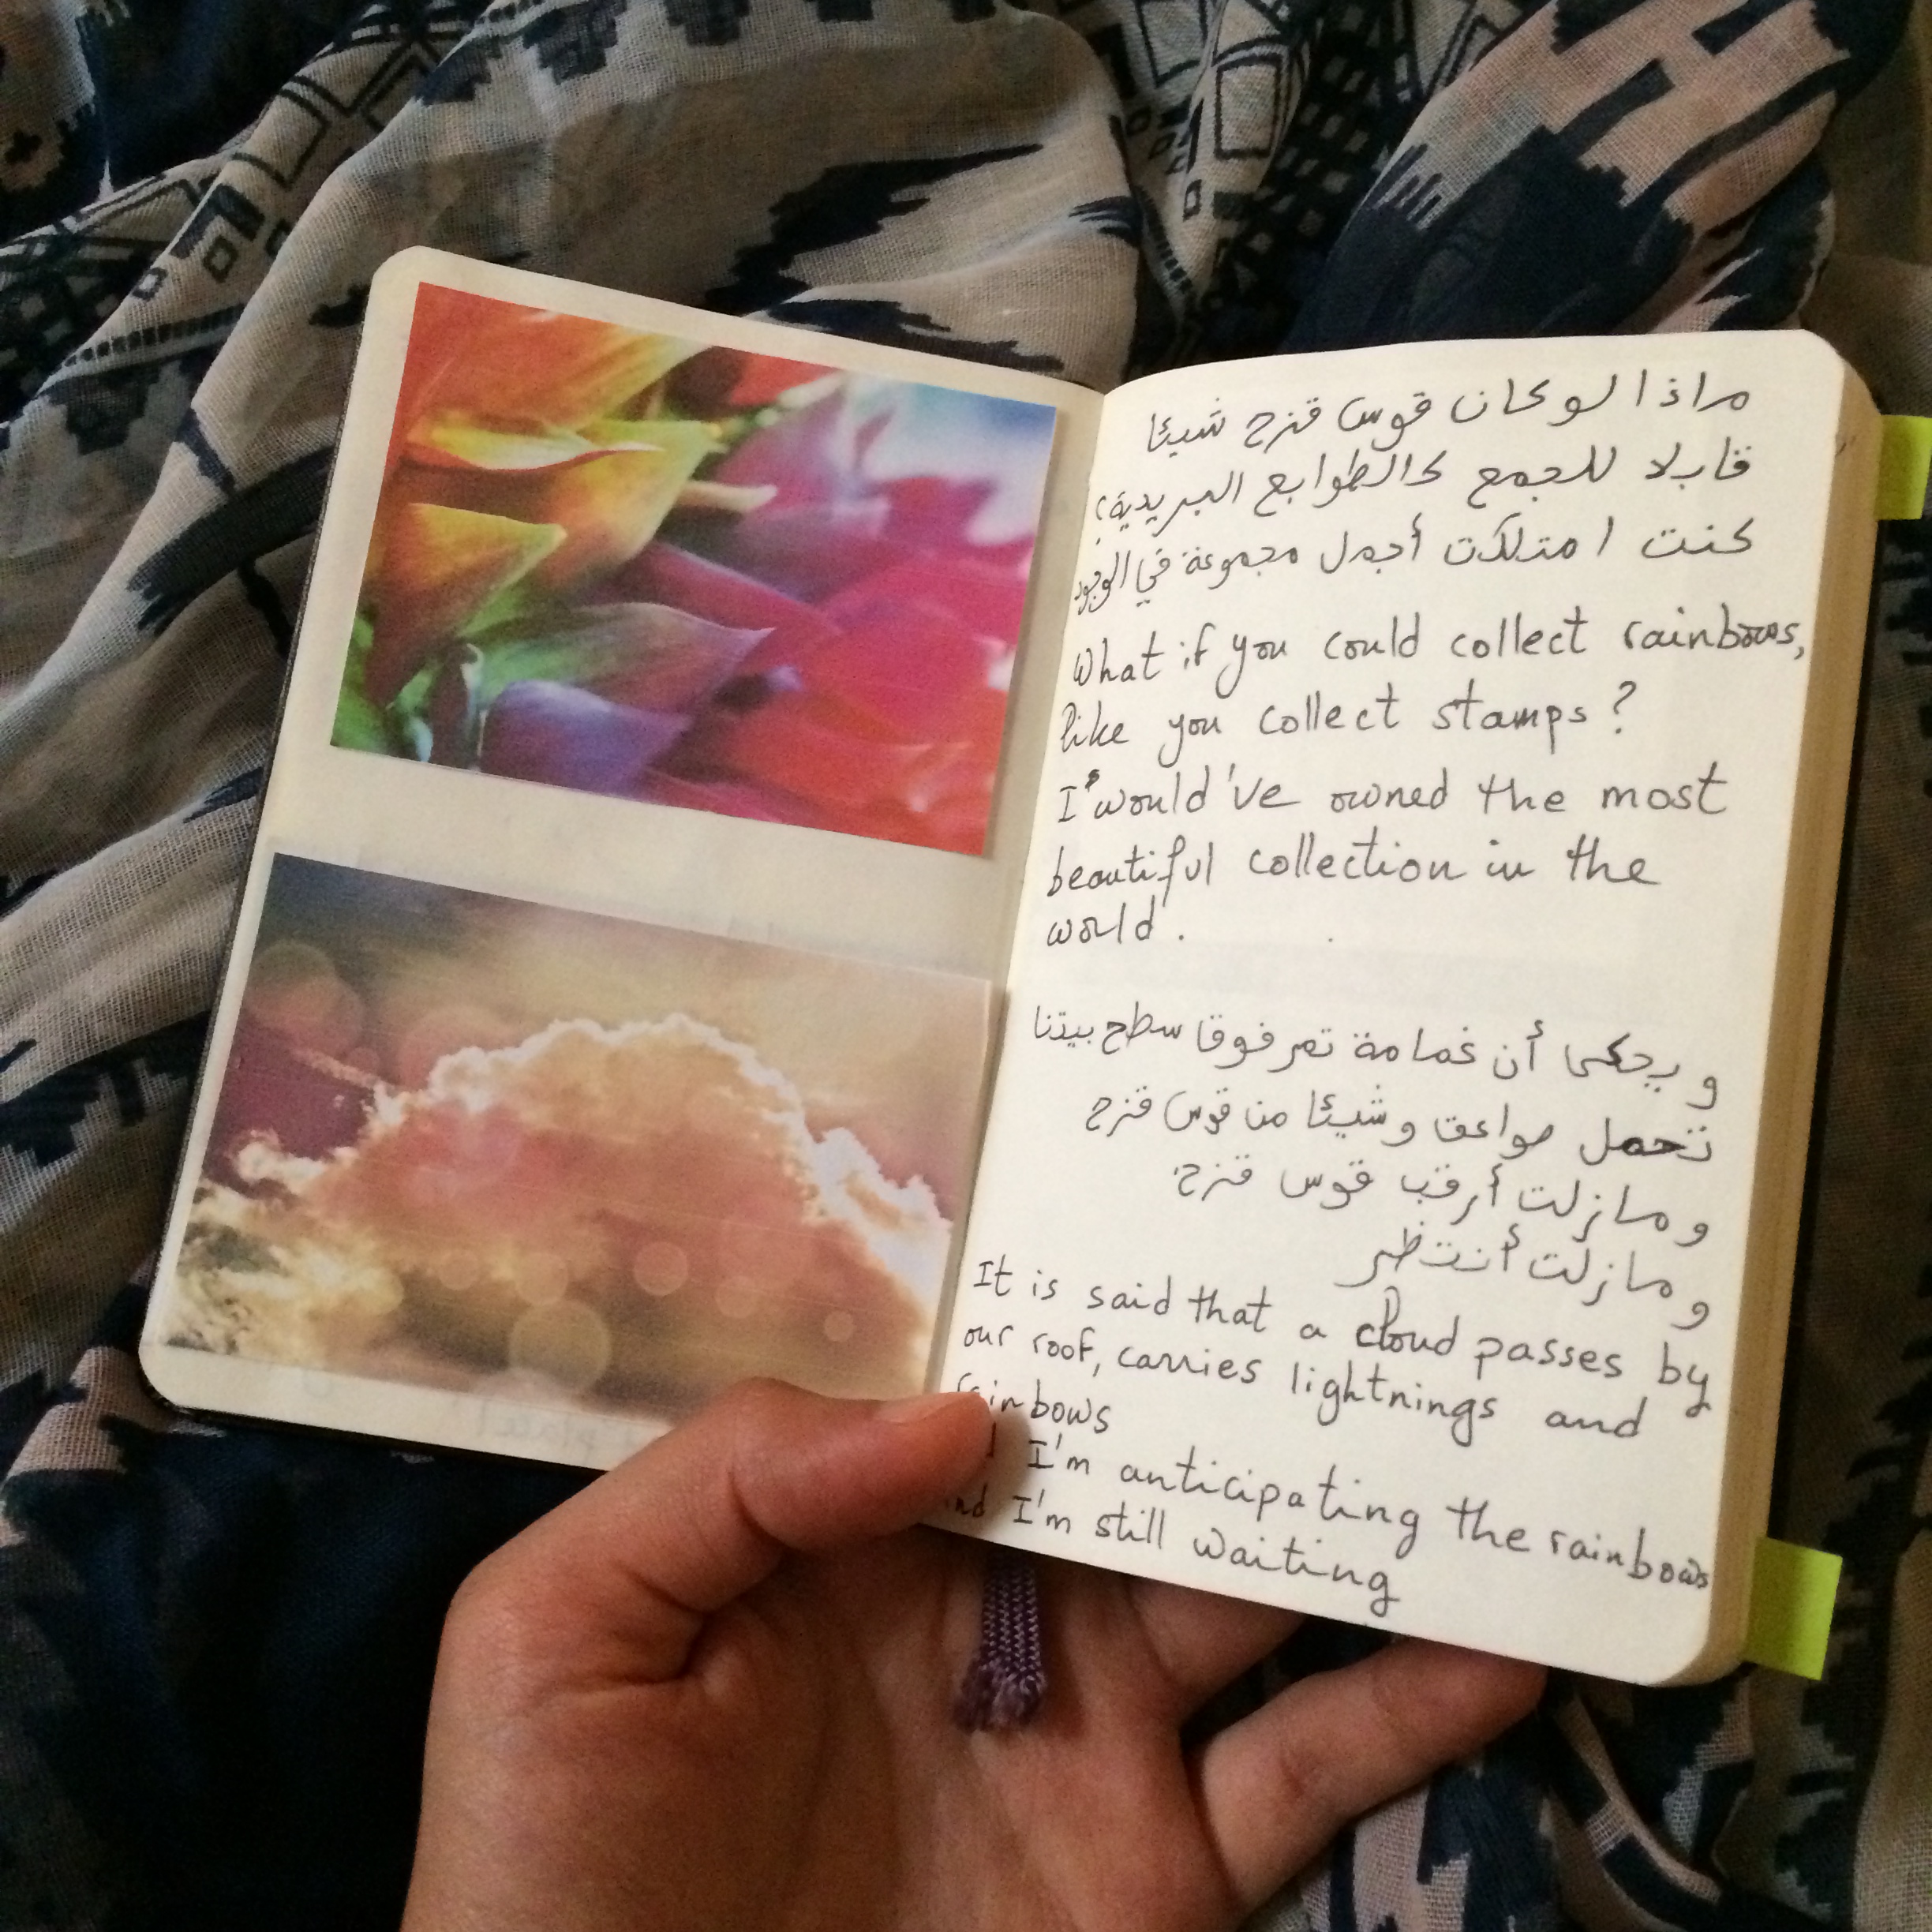 ماذا لو كان قوس قزح شيئا
قابلا للجمع كالطوابع البريدية؟
كنت امتلكت أجمل مجموعة في الوجود
What if you could collect rainbows,
like you collect stamps?
I would've owned the most
beautiful collection in the
world.
و يحكى أن غمامة تمر فوقا سطح بيتنا
تحمل صواعق وشيئا من قوس قزح
ومازلت أرقب قوس قزح
ومازلت أنتظر
It is said that a cloud passes by
our roof, carries lightnings and
rainbows
I'm anticipating the rainbows
and I'm still waiting